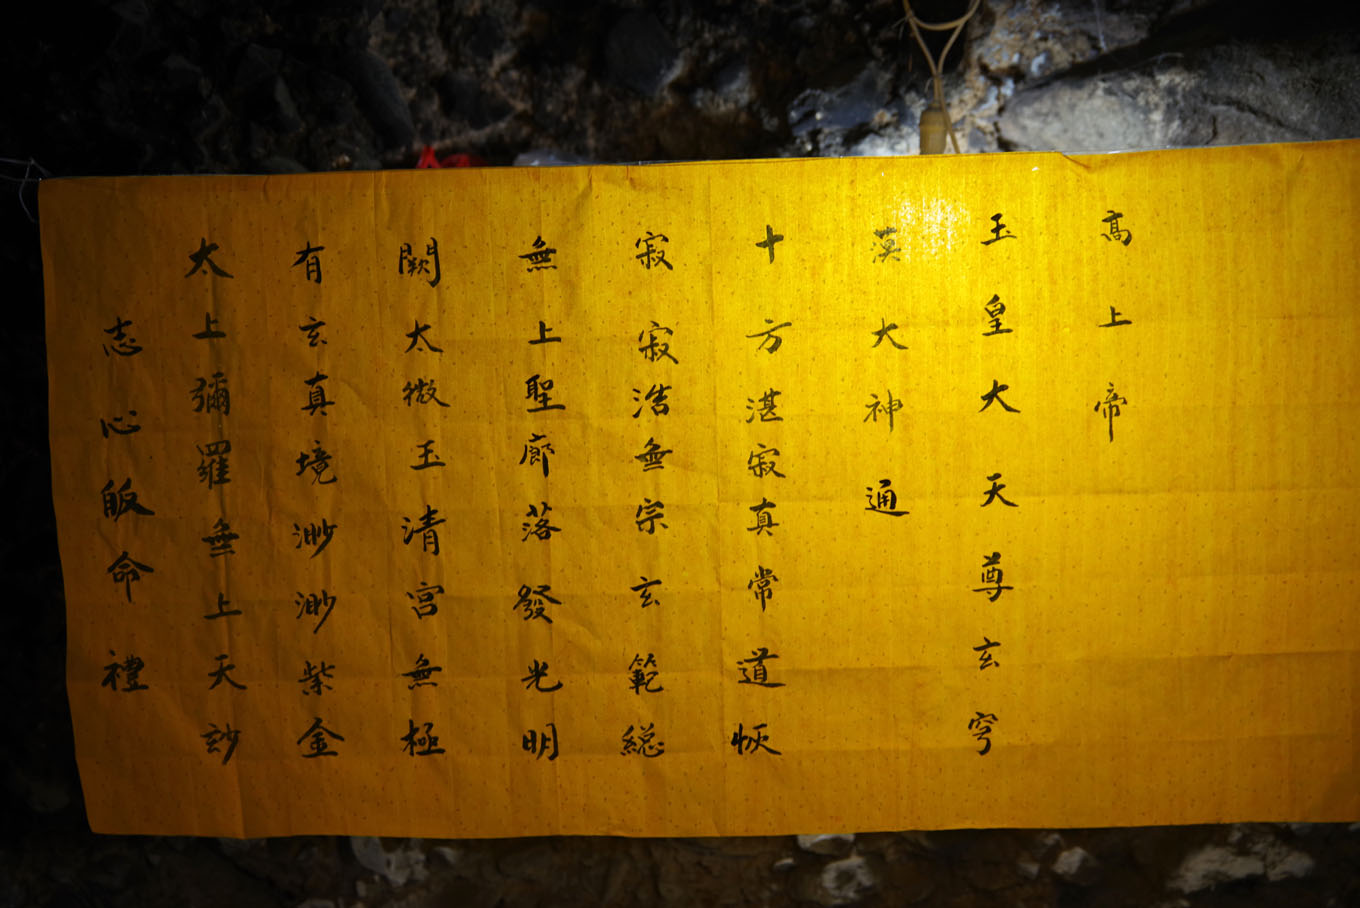 志心皈命禮
太上彌羅無上天玅
有玄真境渺渺紫金
闕太微玉清宮無極
無上聖廓落發光明
寂寂浩無宗玄範総
十方湛寂真常道恢
漠大神通
玉皇大天尊玄穹
高上帝